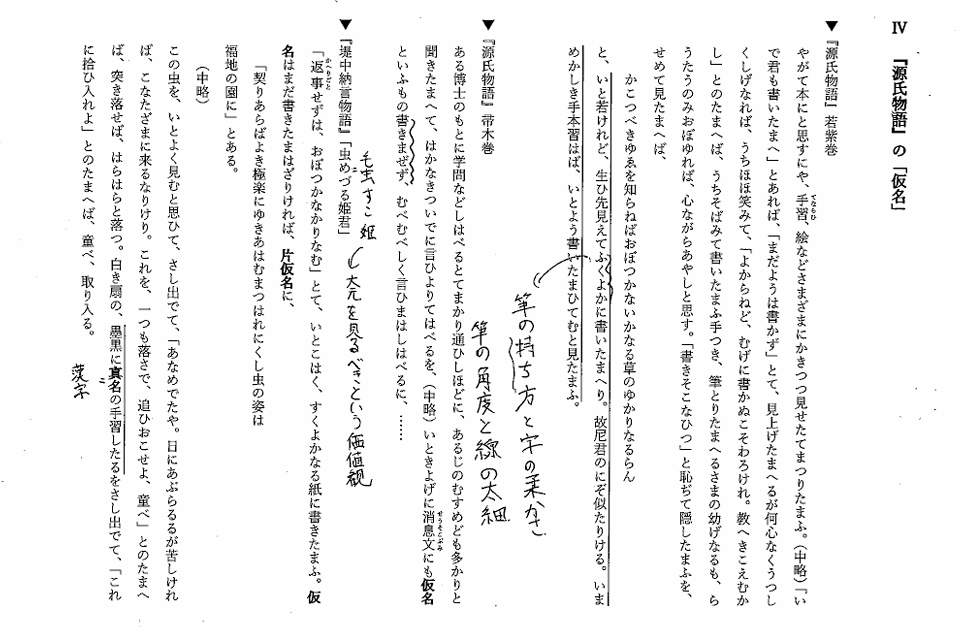 Ⅳ 『源氏物語』の「仮名」
▼『源氏物語』若紫巻
やがて本にと思すにや、手習、絵などさまざまにかきつつ見せたてまつりたまふ。（中略）「い
てならひ
で君も書いたまへ」とあれば、「まだようは書かず」とて、見上げたまへるが何心なくうつし
くしげなれば、うちほほ笑みて、「よからねど、むげに書かぬこそわろけれ。教へきこえむか
し」とのたまへば、うちそばみて書いたまふ手つき、筆とりたまへるさまの幼げなるも、ら
うたうのみおぼゆれば、心ながらあやしと思す。「書きそこなひつ」と恥ぢて隠したまふを、
せめて見たまへば、
かこつべきゆゑを知らねばおぼつかないかなる草のゆかりなるらん
と、いと若けれど、生ひ先見えてふくよかに書いたまへり。故尼君のにぞ似たりける。いま
めかしき手本習はば、いとよう書いたまひてむと見たまふ。
筆の持ち方と字の柔かさ
筆の角度と線の太細
▼『源氏物語』帚木巻
ある博士のもとに学問などしはべるとてまかり通ひしほどに、あるじのむすめども多かりと
聞きたまへて、はかなきついでに言ひよりてはべるを、（中略）いときよげに消息文にも仮名
せうそこぶみ
といふもの書きまぜず、むべむべしく言ひまはしはべるに、……
▼『堤中納言物語』「虫めづる姫君」
毛虫すこ姫
大元を見るべきという価値観
「返事せずは、おぼつかなかりなむ」とて、いとこはく、すくよかなる紙に書きたまふ。仮
かへりごと
名はまだ書きたまはざりければ、片仮名に、
「契りあらばよき極楽にゆきあはむまつはれにくし虫の姿は
福地の園に」とある。
（中略）
この虫を、いとよく見むと思ひて、さし出でて、「あなめでたや。日にあぶらるるが苦しけれ
ば、こなたざまに来るなりけり。これを、一つも落さで、追ひおこせよ、童べ」とのたまへ
ば、突き落せば、はらはらと落つ。白き扇の、墨黒に真名の手習したるをさし出でて、「これ
漢字
に拾ひ入れよ」とのたまへば、童べ、取り入る。